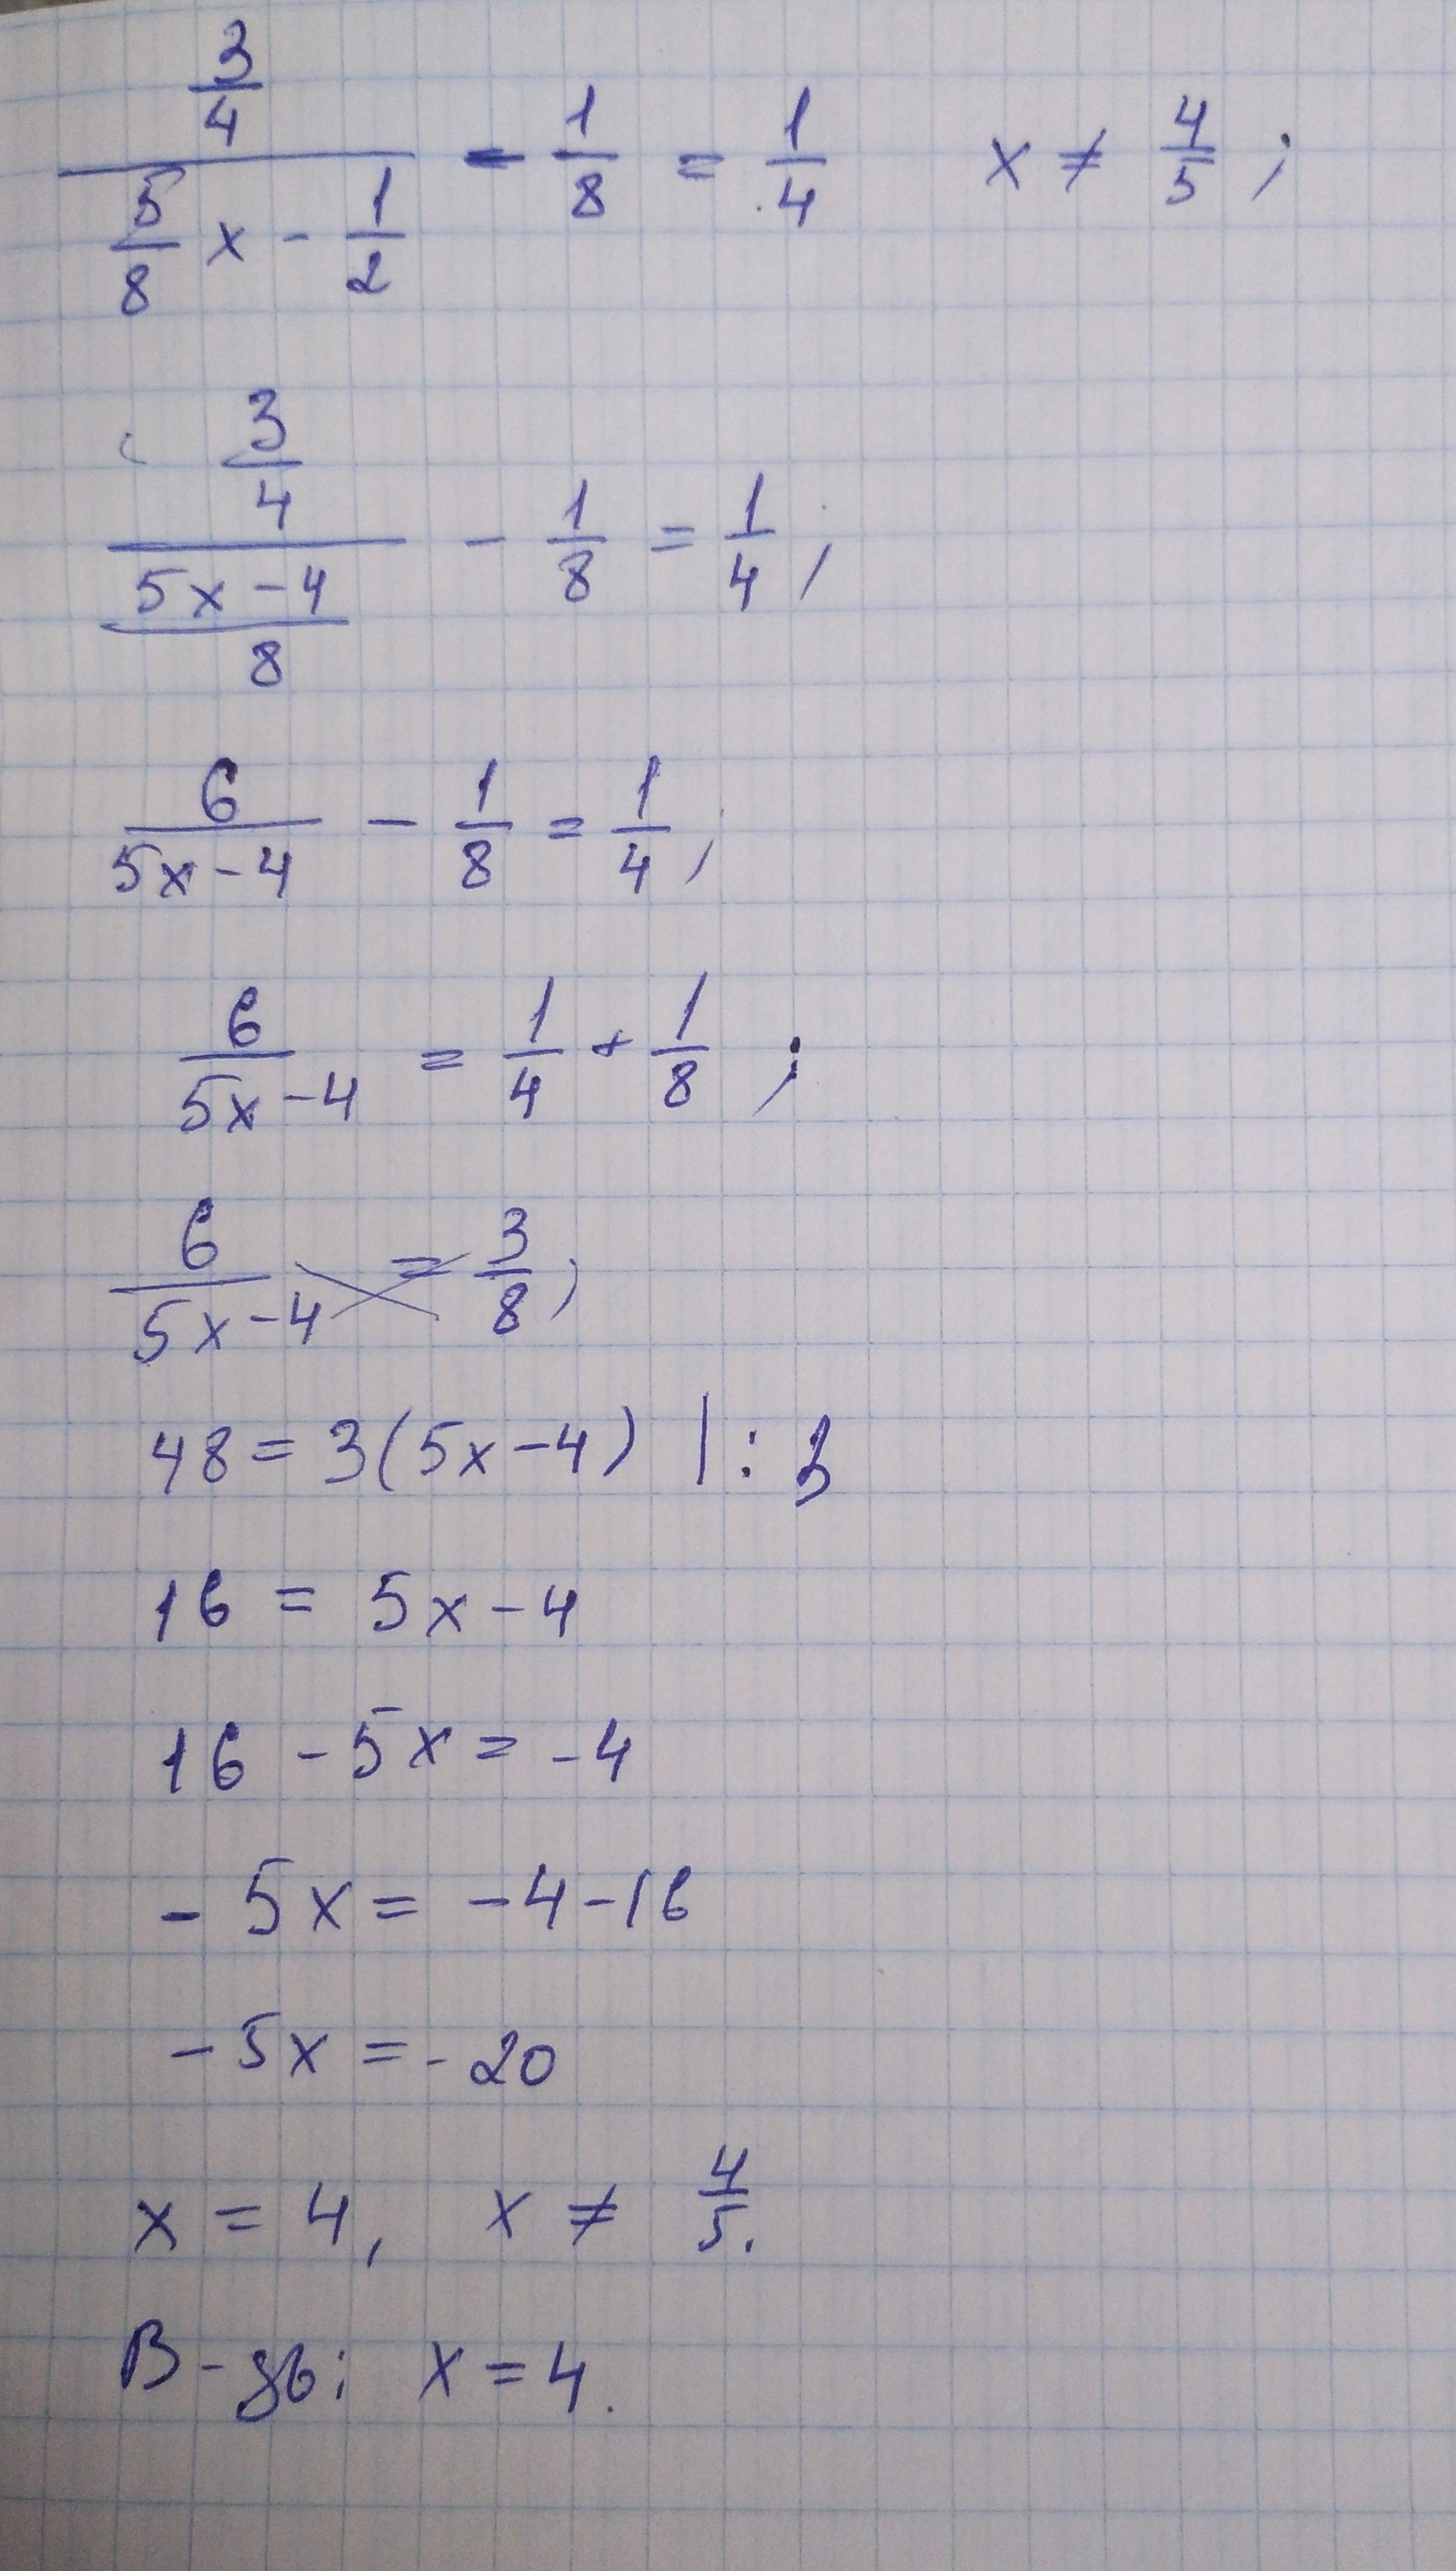 (3/4)/(5/8 x - 1/2) - 1/8 = 1/4 x ≠ 4/5 ;
(3/4)/((5x - 4)/8) - 1/8 = 1/4 ,
6/(5x - 4) - 1/8 = 1/4 ,
6/(5x - 4) = 1/4 + 1/8 ;
6/(5x - 4) = 3/8 ;
48 = 3(5x - 4) | : 3
16 = 5x - 4
16 - 5x = -4
- 5x = -4 - 16
- 5x = -20
x = 4, x ≠ 4/5.
В-дь: x = 4.